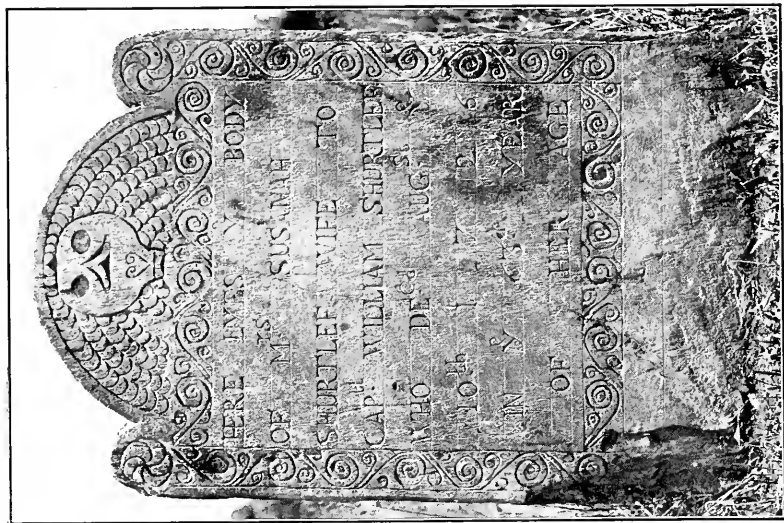 HERE LYES Y BODY
OF Mrs SUSANAH
SHURTLEF WIFE TO
CAPt WILLIAM SHURTLEF
WHO DEcd AUGst ye
10th 1 7 2 6
IN Ye YEAR
OF HER AGE